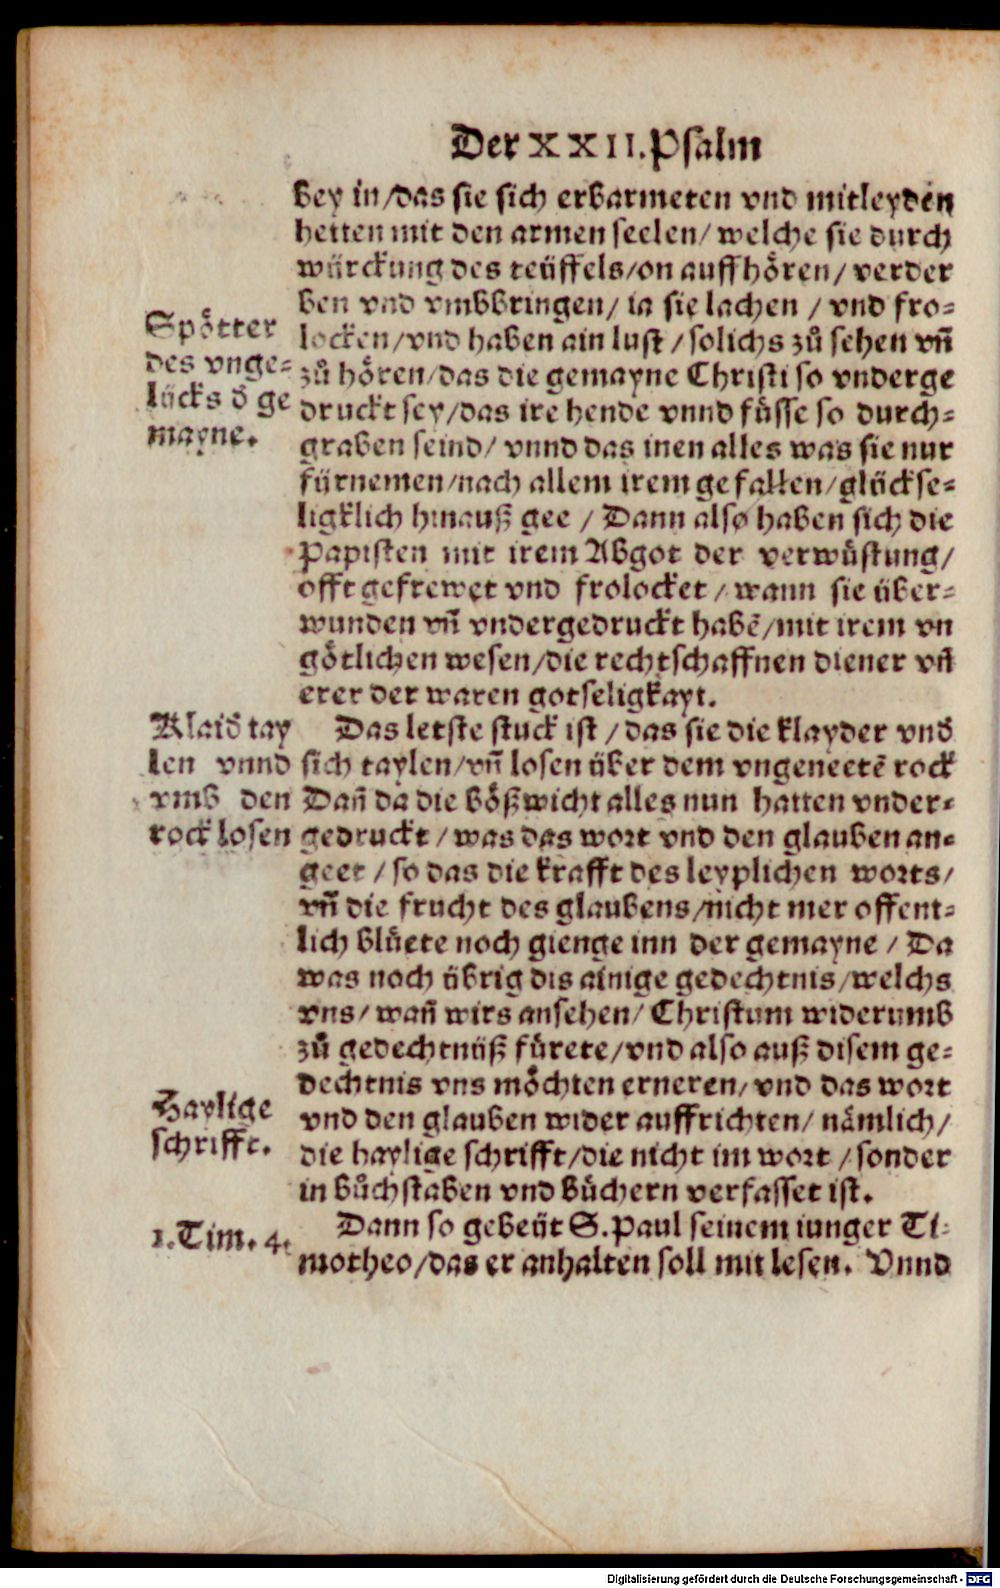 Der XXII. Psalm
bey in/das sie sich erbarmeten vnd mitleyden
hetten mit den armen seelen/ welche sie durch
würckung des teüffels/on auffhören/ verder
ben vnd vmbbringen/ ia sie lachen / vnd fro-
locken/vnd haben ain lust / solichs zů sehen vñ
zů hören/das die gemayne Christi so vnderge
druckt sey/das ire hende vnnd füsse so durch-
graben seind/ vnnd das inen alles was sie nur
fürnemen/nach allem irem gefallen/glückse-
ligklich hinauß gee / Dann also haben sich die
Papisten mit irem Abgot der verwüstung/
offt gefrewet vnd frolocket / wann sie über-
wunden vñ vndergedruckt habẽ/mit irem vn
götlichen wesen/die rechtschaffnen diener vñ
erer der waren gotseligkayt.
Spötter
des vnge-
lücks d̕ ge
mayne.
Das letste stuck ist / das sie die klayder vnd̕
sich taylen/vñ losen über dem vngeneetẽ rock
Dañ da die bößwicht alles nun hatten vnder-
gedruckt / was das wort vnd den glauben an-
geet / so das die krafft des leyplichen worts/
vñ die frucht des glaubens/nicht mer offent-
lich blüete noch gienge inn der gemayne / Da
was noch übrig dis ainige gedechtnis/welchs
vns/ wañ wirs ansehen/ Christum widerumb
zů gedechtnüß fürete/vnd also auß disem ge-
dechtnis vns möchten erneren/ vnd das wort
vnd den glauben wider auffrichten/ nämlich/
die haylige schrifft/die nicht im wort / sonder
in bůchstaben vnd büchern verfasset ist.
Klaid̕ tay
len vnnd
vmb den
rock losen
Haylige
schrifft.
Dann so gebeüt S. Paul seinem iunger Ti-
motheo/das er anhalten soll mit lesen. Vnnd
1. Tim. 4.
Digitalisierung gefördert durch die Deutsche Forschungsgemeinschaft - DFG